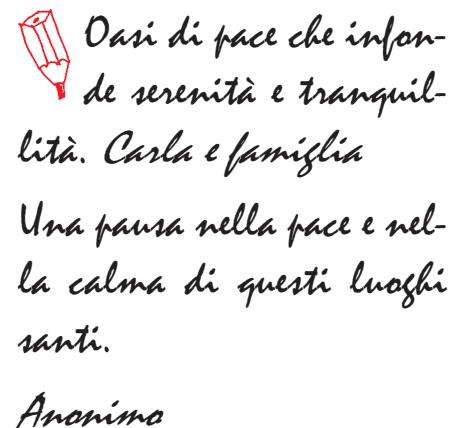 Oasi di pace che infon-
de serenità e tranquil-
lità. Carla e famiglia
Una pausa nella pace e nel-
la calma di questi luoghi
santi.
Anonimo